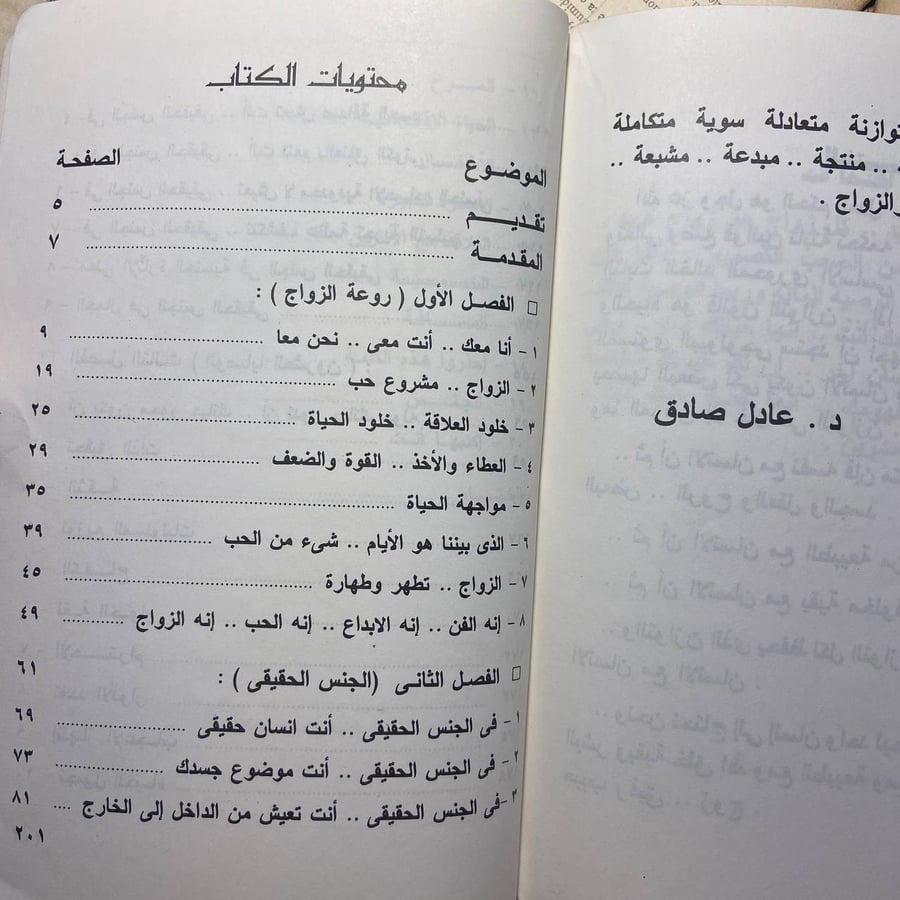 توازنة متعادلة سوية متكاملة
.. منتجة .. مبدعة .. مشبعة ..
الزواج .
د . عادل صادق
محتويات الكتاب
الموضوع الصفحة
تقديم ٥
المقدمة ٧
□ الفصل الأول ( روعة الزواج ) :
١ - أنا معك .. أنت معى .. نحن معا ٩
٢ - الزواج .. مشروع حب ١٩
٣ - خلود العلاقة .. خلود الحياة ٢٥
٤ - العطاء والأخذ .. القوة والضعف ٢٩
٥ - مواجهة الحياة ٣٥
٦ - الذى بيننا هو الأيام .. شىء من الحب ٣٩
٧ - الزواج .. تطهر وطهارة ٤٥
٨ - إنه الفن .. إنه الابداع .. إنه الحب .. إنه الزواج ٤٩
□ الفصل الثانى (الجنس الحقيقى ) : ٦١
١ - فى الجنس الحقيقى .. أنت انسان حقيقى ٦٩
٢ - فى الجنس الحقيقى .. أنت موضوع جسدك ٧٣
٣ - فى الجنس الحقيقى .. أنت تعيش من الداخل إلى الخارج ٨١
٢٠١